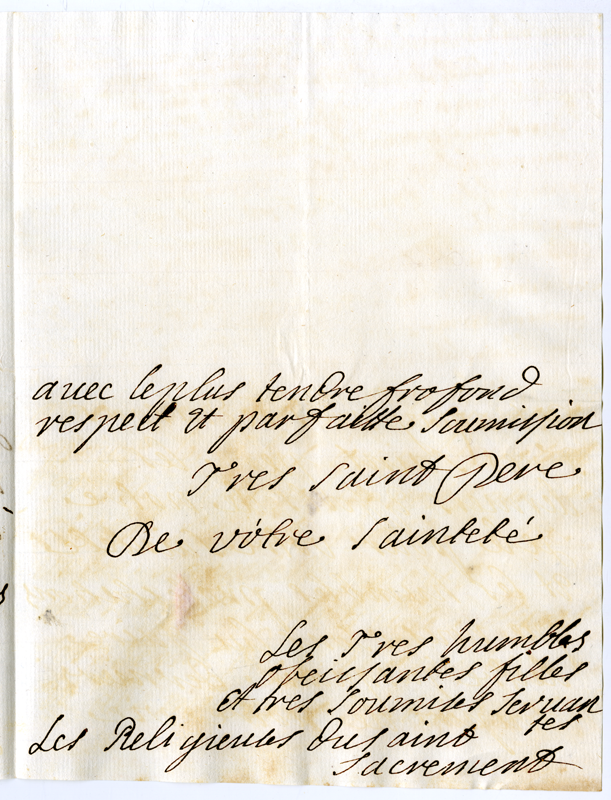 avec le plus tendre profond
respect et parfaitte soumission
Tres saint Pere
De vôtre sainteté
Les Tres humbles
obeissantes filles
et tres soumises servan
tes
Les Religieuses du saint
sacrement